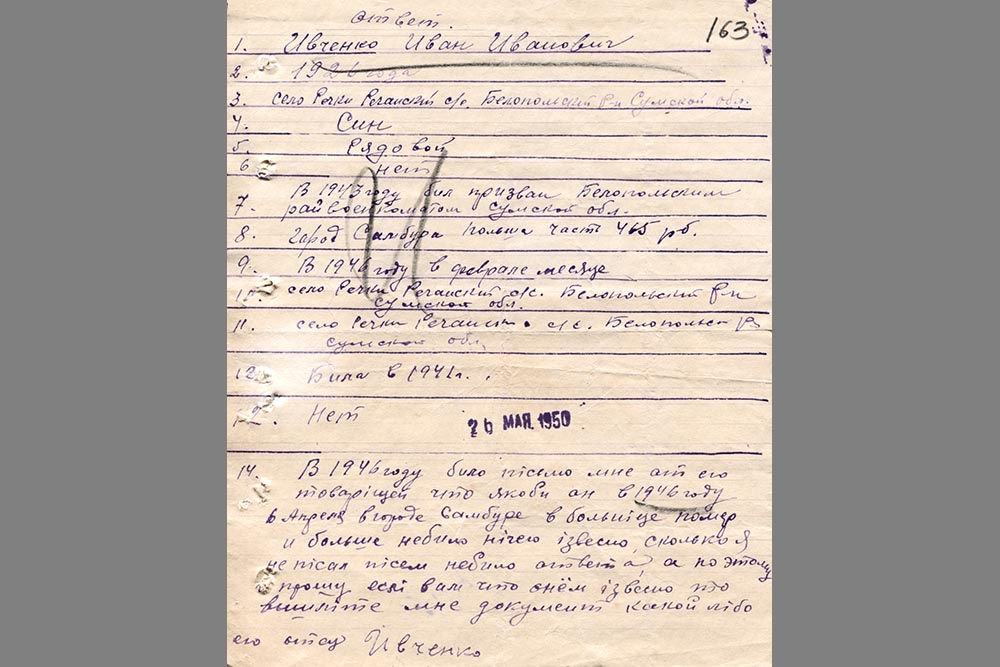 ответ.
163
1. Ивченко Иван Иванович
2. 1926 года
3. село Речки Речанский с/с. Белопольский р-н Сумской обл.
4. Син
5. Рядовой
6 нет
В 1943 году бил призван Белопольским
7. райвоенкоматом Сумской обл.
8. город Самбура Польша част 465 рб.
9. В 1946 году в феврале месяце
село Речки Речанский с/с. Белопольский р-н
Сумской обл.
11. село Речки с/с. Белопольск р-н
Сумской обл.
12. Била в 1941 г.
Нет
26 МАЯ 1950
14. В 1946 году било пісьмо мне от его
товаріщей что якоби он в 1946 году
6 Апреля в городе Самбуре в больніце помер
и больше небило нічего ізвесно, сколько я
не писал пісем небило ответа, а по этому
прошу еслі вам что онём ізвесно то
вишліте мне документ какой лібо
его отец Ивченко